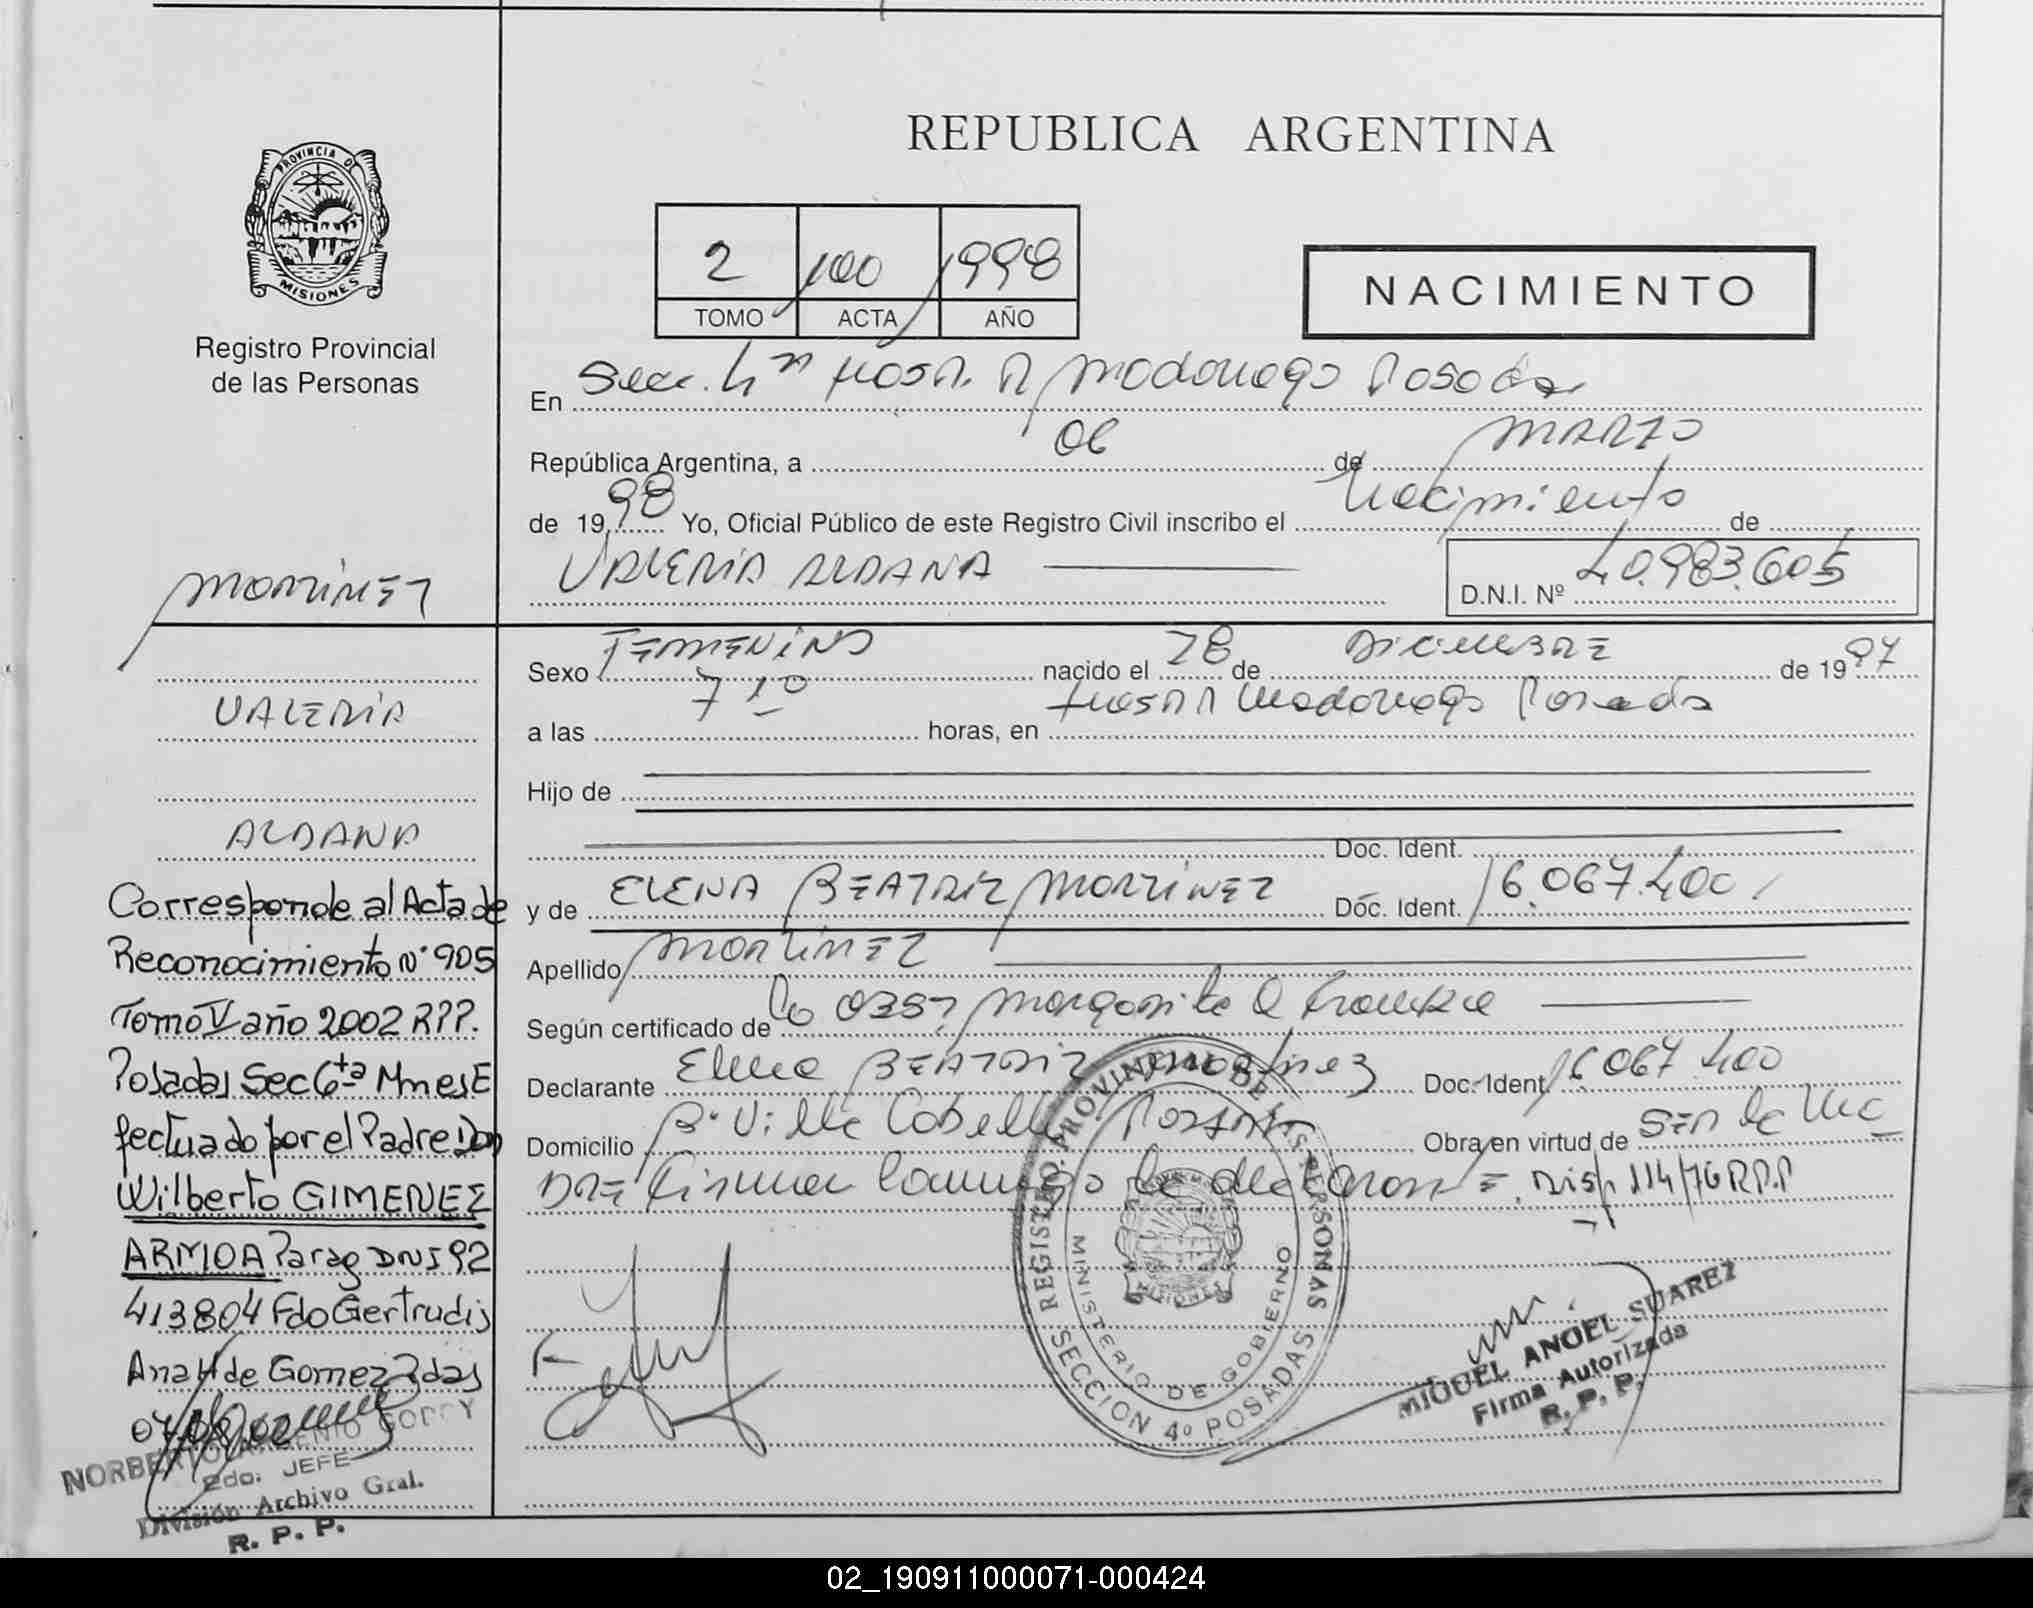 REPUBLICA ARGENTINA
PROVINCIA DE
MISIONES
Registro Provincial
de las Personas
2 100 1998
TOMO ACTA AÑO
NACIMIENTO
En Secc. 4ta Hosp. R Madariaga Posadas
República Argentina, a 06 de MARZO
de 1998 Yo, Oficial Público de este Registro Civil inscribo el Nacimiento de
VALERIA ALDANA
D.N.I. Nº 40.983.605
MARTINEZ
VALERIA
ALDANA
Sexo FEMENINO nacido el 28 de DICIEMBRE de 1997
a las 7 10 horas, en Hosp R Madariaga Posadas
Hijo de
Doc. Ident.
y de ELENA BEATRIZ MARTINEZ Doc. Ident. 16.067.400
Apellido MARTINEZ
Según certificado de la Margarita
Declarante Elena BEATRIZ Martinez Doc. Ident. 16.067.400
Domicilio B° Villa Cabello Posadas Obra en virtud de SER la
MADRE Firman conmigo la declarante. Disp 114/76 R.P.P
Corresponde al Acta de
Reconocimiento N° 905
Tomo V año 2002 R.P.P.
Posadas Sec 6ta Mnes E
fectuado por el Padre Don
Wilberto GIMENEZ
ARMOA Parag DNI 92
413804 Fdo Gertrudis
Ana H de Gomez Pdas
07.08.02
NORBERTO GODOY
Pdo. JEFE
División Archivo Gral.
R. P. P.
REGISTRO PROVINCIAL DE LAS PERSONAS
MINISTERIO DE GOBIERNO
MISIONES
SECCION 4º POSADAS
MIGUEL ANGEL SUAREZ
Firma Autorizada
R. P. P.
02_190911000071-000424